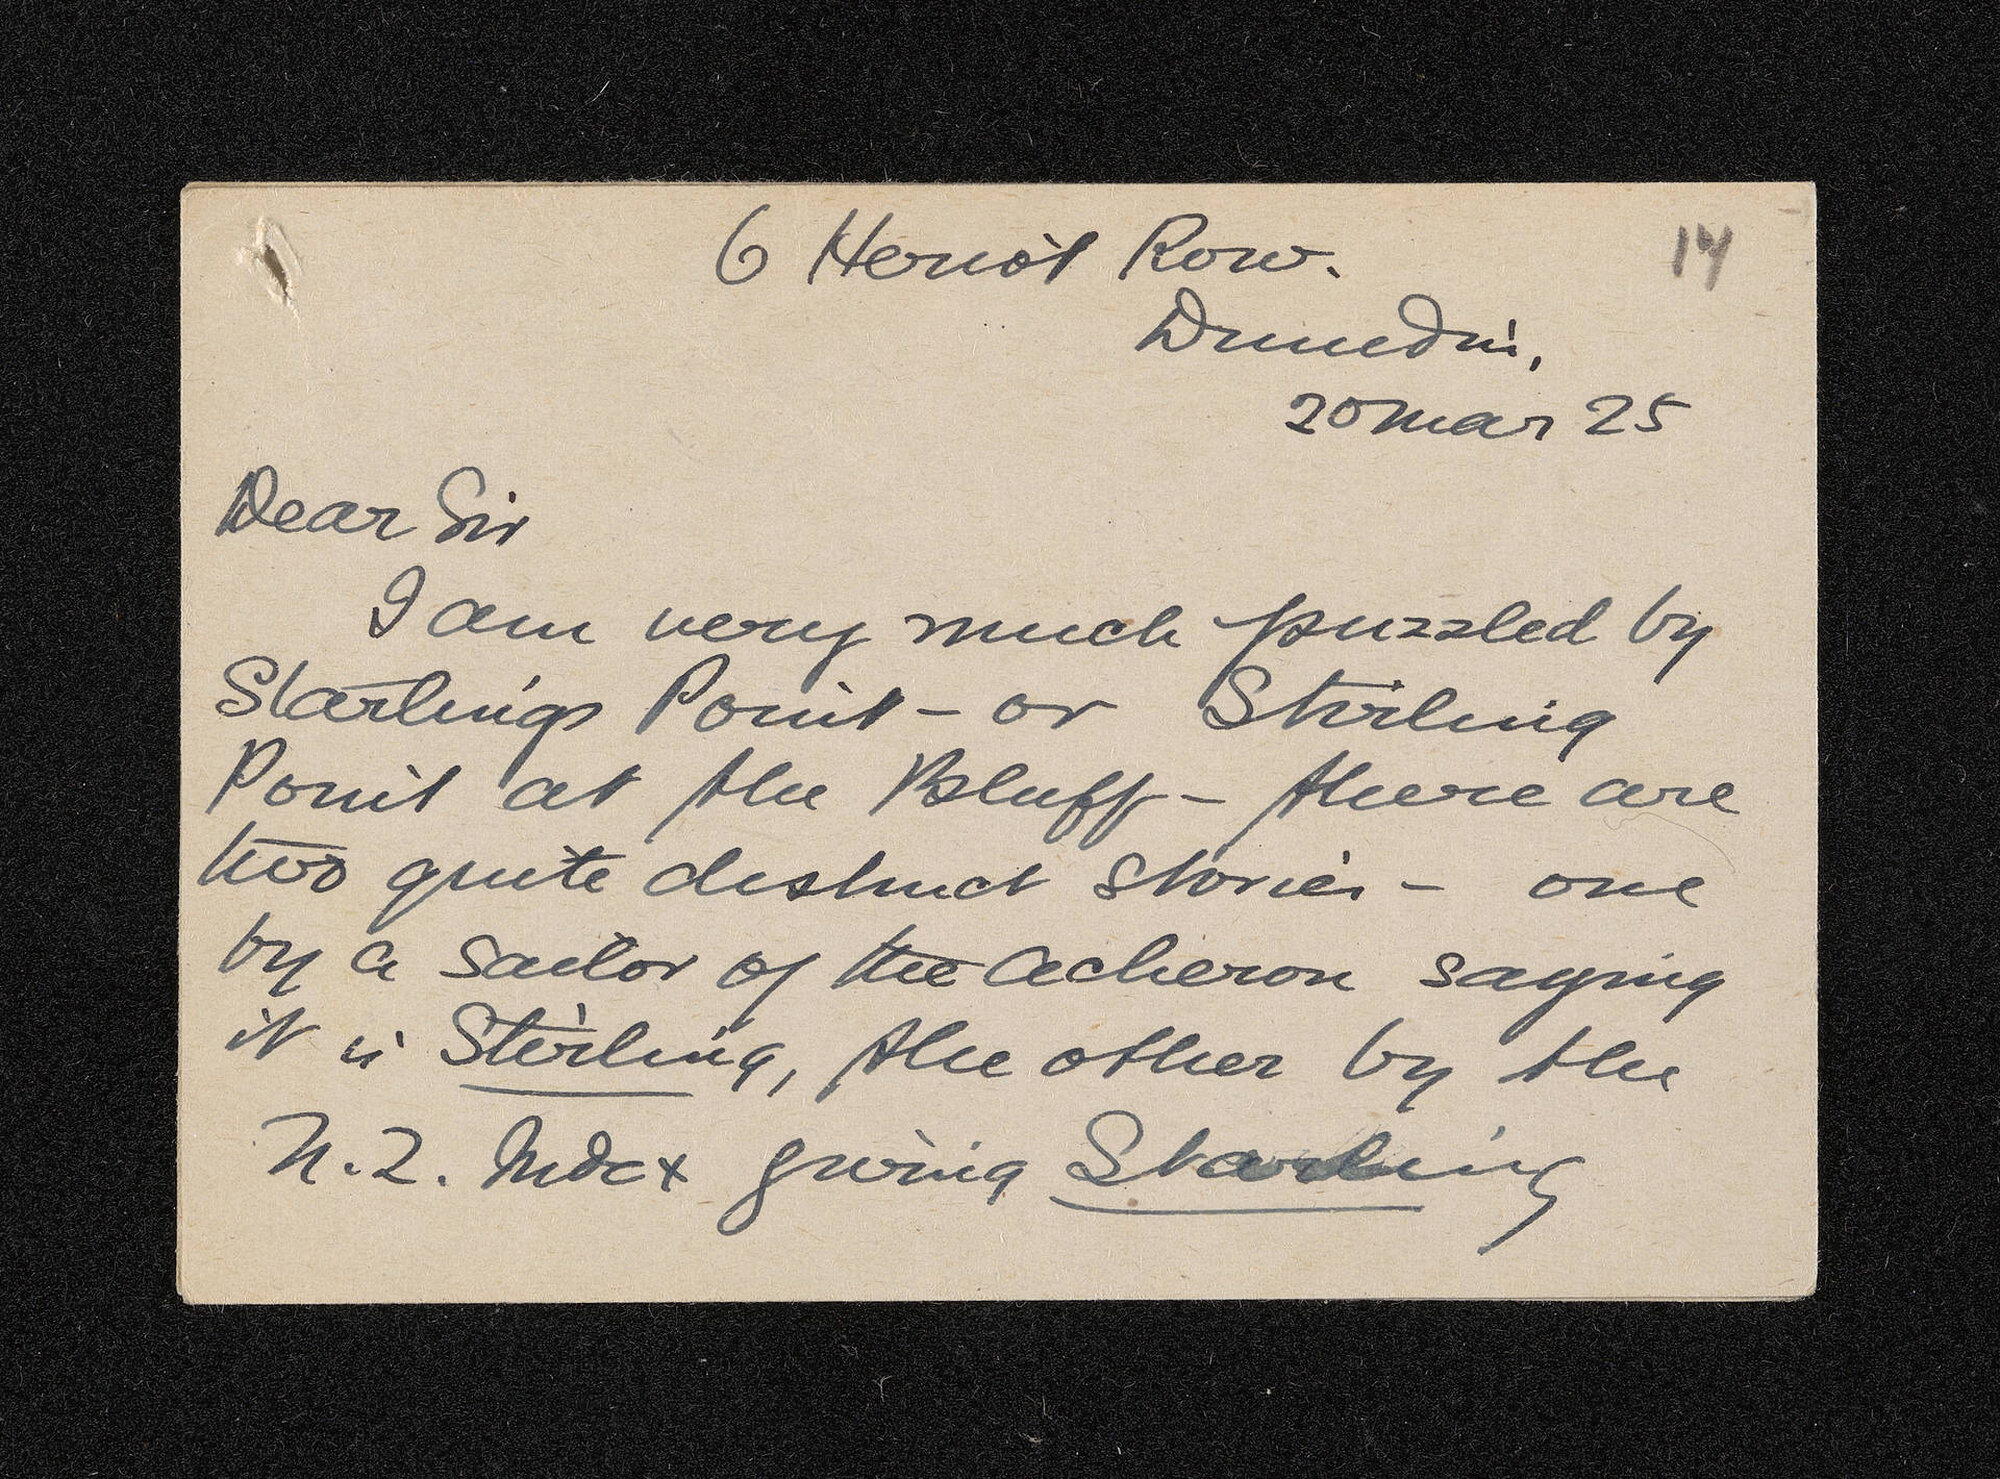 6 Heriot Row.
14
Dunedin,
20 Mar 25
Dear Sir
I am very much puzzled by
Starlings Point - or Stirling
Point at the Bluff - there are
two quite distinct stories - one
by a sailor of the Acheron saying
it is Stirling, the other by the
N.Z. Index giving Starling